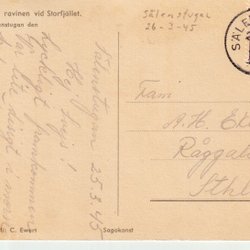 ravinen vid Storfjället.
enstugan den
Sälenstugan
26-3-45
SÄLE
Sälenstugan 25.3.45
Hej
Lyckligt framkommen
lite
Fam
A. H. E
Råggat
Sthl
C. Ewert
Sagokonst